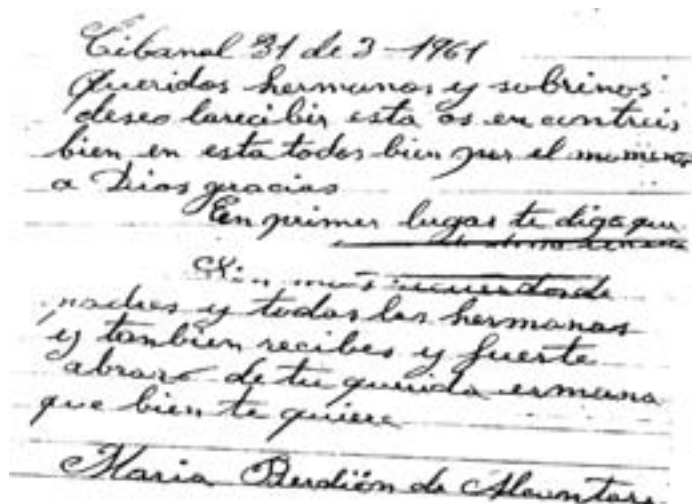 Cibanal 31 de 3 - 1961
Queridos hermanos y sobrinos:
deseo larecibir esta os encontreis
bien en esta todos bien por el momento
a Dios gracias
En primer lugar te digo que
Sin más recuerdos de
padres y todos los hermanos
y tanbien recibes y fuerte
abrazo de tu querida ermana
que bien te quiere
Maria Berdión de Alcantara